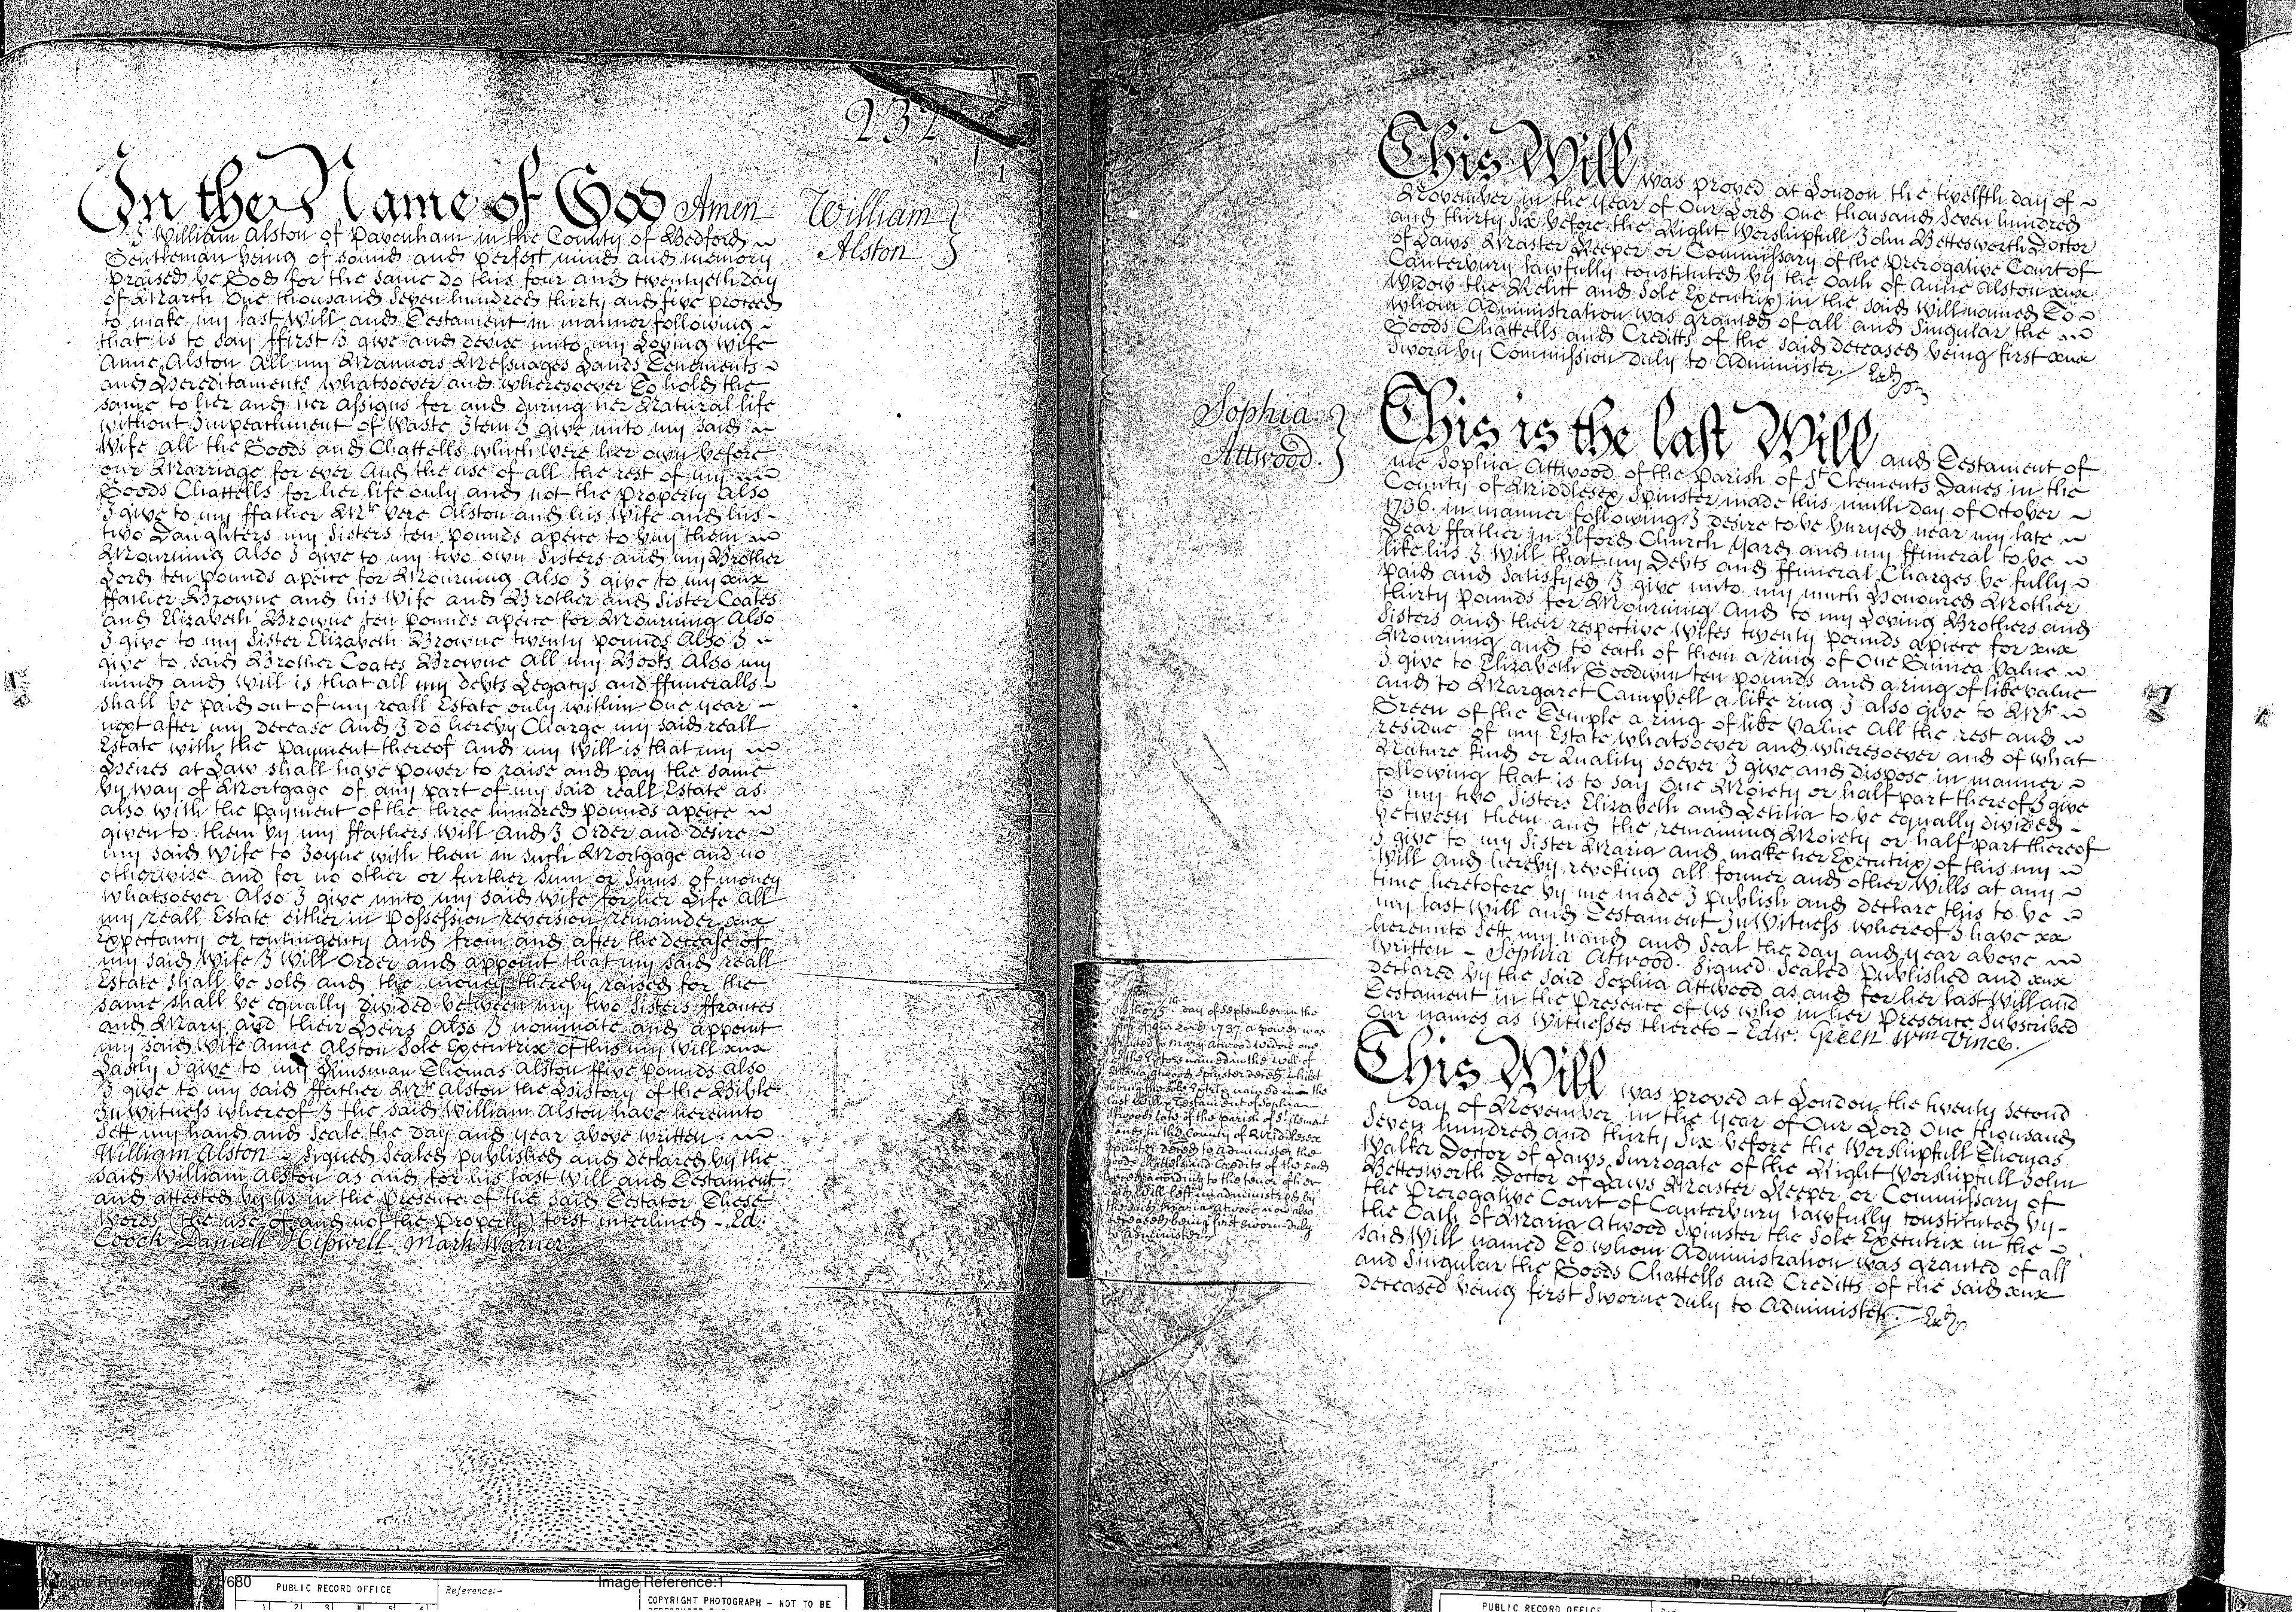 232
1
In the Name of God Amen
William
Alston
I William Alston of Pavenham in the County of Bedford
Gentleman being of sound and perfect mind and memory
praised be God for the same do this four and twentyeth day
of March One thousand Seven hundred thirty and five proceed
to make my last Will and Testament in manner following
that is to say ffirst I give and devise unto my Loving Wife
Anne Alston All my Mannors Messuages Lands Tenements
and Hereditaments whatsoever and wheresoever To hold the
same to her and her Assigns for and during her Natural life
without Impeachment of Waste Item I give unto my said
Wife all the Goods and Chattells which were her own before
our Marriage for ever And the use of all the rest of my
Goods Chattells for her life only and not the Property Also
I give to my ffather Mr. Vere Alston and his Wife and his
two Daughters my Sisters ten pounds apeice to buy them
Mourning Also I give to my two own Sisters and my Brother
Lord ten pounds apeice for Mourning Also I give to my
ffather Browne and his Wife and Brother and Sister Coates
and Elizabeth Browne ten pounds apeice for Mourning Also
I give to my Sister Elizabeth Browne twenty pounds Also I
give to said Brother Coates Browne All my Books Also my
mind and Will is that all my debts Legacys and ffuneralls
shall be paid out of my reall Estate only within One year
next after my decease And I do hereby Charge my said reall
Estate with the payment thereof And my Will is that my
Heires at Law shall have power to raise and pay the same
by way of Mortgage of any part of my said reall Estate as
also with the Payment of the three hundred pounds apeice
given to them by my ffathers Will And I Order and desire
my said Wife to Joyne with them in such Mortgage and no
otherwise and for no other or further Sum or Sums of money
whatsoever Also I give unto my said Wife for her Life All
my reall Estate either in Possession reversion remainder
Expectancy or contingency And from and after the decease of
my said Wife I Will Order and appoint that my said reall
Estate shall be sold and the money thereby raised for the
same shall be equally divided between my two Sisters ffrances
and Mary and their Heirs Also I nominate and appoint
my said Wife Anne Alston Sole Executrix of this my Will
Lastly I give to my Kinsman Thomas Alston ffive pounds Also
I give to my said ffather Mr. Alston the History of the Bible
In Witness whereof I the said William Alston have hereunto
sett my hand and Seale the Day and year above written
William Alston - Signed Sealed published and declared by the
said William Alston as and for his last Will and Testament
and attested by us in the Presence of the said Testator These
words (the use of and not the Property) first interlined - Ed:
Cooch Daniell Hipwell Mark Warner
This Will was proved at London the twelfth day of
November in the year of Our Lord One thousand Seven hundred
and thirty Six before the Right Worshipfull John Bettesworth Doctor
of Laws Master Keeper or Commissary of the Prerogative Court of
Canterbury lawfully constituted by the Oath of Anne Alston
Widow the Relict and Sole Executrix in the said Will named To
whom Administration was granted of all and Singular the
Goods Chattells and Creditts of the said deceased being first
Sworn by Commission duly to Administer.
Sophia
Attwood.
This is the last Will and Testament of
me Sophia Attwood of the Parish of St Clements Danes in the
County of Middlesex Spinster made this ninth day of October
1736. in manner following I desire to be buryed near my late
Dear ffather in Ilford Church Yard and my ffuneral to be
like his I Will that my Debts and ffuneral Charges be fully
paid and satisfyed I give unto my much Honoured Mother
thirty pounds for Mourning And to my Loving Brothers and
Sisters and their respective Wifes twenty pounds apiece for
Mourning and to each of them a ring of One Guinea Value
I give to Elizabeth Goodwin ten pounds and a ring of like value
and to Margaret Campbell a like ring I also give to Mr.
Green of the Temple a ring of like Value All the rest and
residue of my Estate whatsoever and wheresoever and of what
Nature kind or Quality soever I give and dispose in manner
following that is to say One Moiety or half part thereof I give
to my two Sisters Elizabeth and Letitia to be equally divided
between them and the remaining Moiety or half part thereof
I give to my Sister Maria and make her Executrix of this my
Will And hereby revoking all former and other Wills at any
time heretofore by me made I publish and declare this to be
my last Will and Testament In Witness whereof I have
hereunto Sett my hand and Seal the day and year above
written - Sophia Atwood. Signed Sealed Published and
declared by the said Sophia Attwood as and for her last Will and
Testament in the Presence of us who in her Presence Subscribed
Our names as Witnesses thereto - Edw: Green Wm Vince.
day of September in the
1737 a power was
Mary Atwood Widow one
named in the Will of
Atwood Spinster deced whilst
named in the
last Will & Testament of Sophia
Atwood late of the parish of St. Clement
Danes in the County of Middlesex
Spinster deced to administer the
Goods Chattels and Credits of the said
deced according to the tenor of her
said Will left unadministred by
the said Maria Atwood now also
deceased being first sworn duly
to administer
This Will was proved at London the twenty second
day of November in the year of Our Lord One thousand
Seven hundred and thirty Six before the Worshipfull Thomas
Walker Doctor of Laws Surrogate of the Right Worshipfull John
Bettesworth Doctor of Laws Master Keeper or Commissary of
the Prerogative Court of Canterbury lawfully constituted by
the Oath of Maria Atwood Spinster the Sole Executrix in the
said Will named To whom Administration was granted of all
and Singular the Goods Chattells and Creditts of the said
deceased being first Sworne duly to Administer.
Image Reference:1
PUBLIC RECORD OFFICE
Reference:-
COPYRIGHT PHOTOGRAPH - NOT TO BE
Image Reference:1
PUBLIC RECORD OFFICE